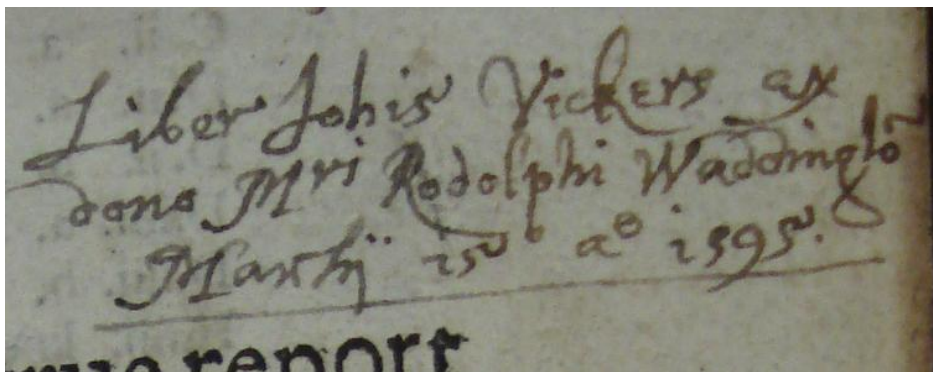 Liber Johis Vickers ex
dono Mri Rodolphi Waddingtō
Martij 15º aº 1595.
true report